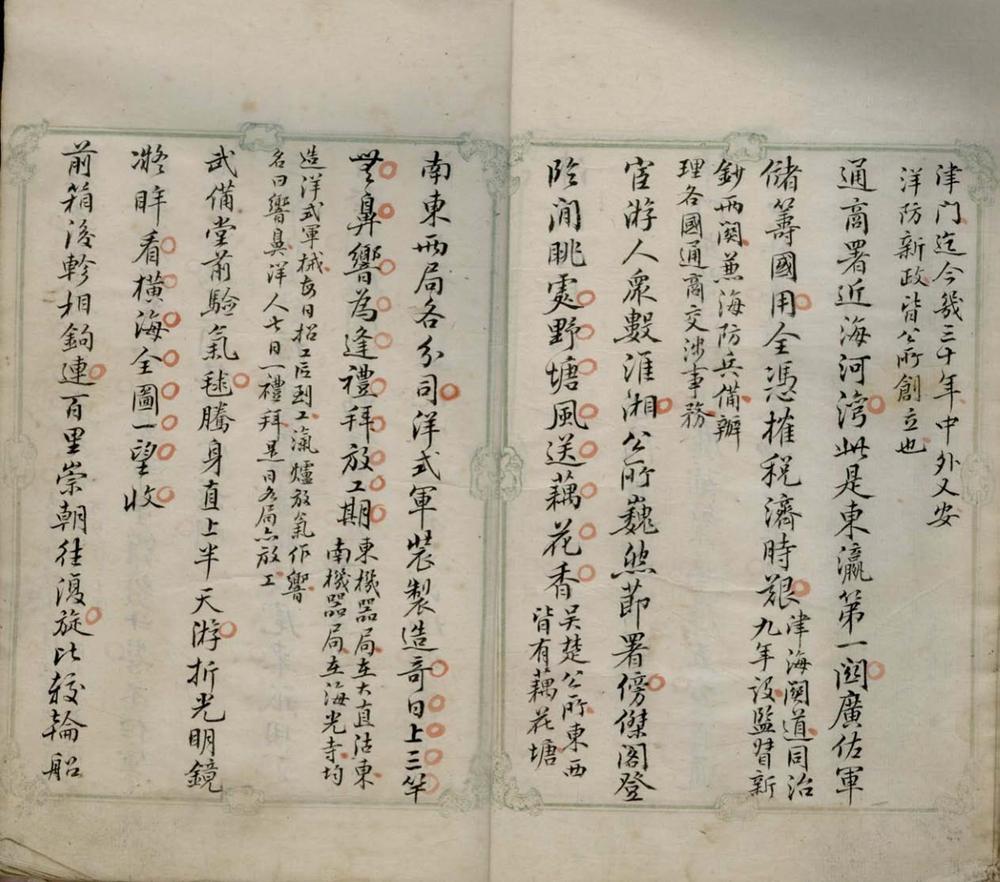 津门迄今幾三十年中外乂安
洋防新政皆公所創立也
通商署近海河湾此是東瀛第一關廣佐軍
儲籌國用全憑搉稅濟時艱
津海關道同治
九年設監督新
鈔兩關兼海防兵備辦
理各國通商交涉事務
宦游人衆數淮湘公所巍然節署傍傑閣登
臨閒眺處野塘風送藕花香
吴楚公所東西
皆有藕花塘
南東兩局各分司洋式軍裝製造奇日上三竿
無鼻響為逢禮拜放工期
東機器局在大直沽東
南機器局在海光寺均
造洋式軍械每日招工匠到工滊爐放氣作響
名曰響鼻洋人七日一禮拜是日各局亦放工
武備堂前驗氣毬騰身直上半天游折光明鏡
凝眸看橫海全圖一望收
前箱後軫相鉤連百里崇朝往復旋比較輪船